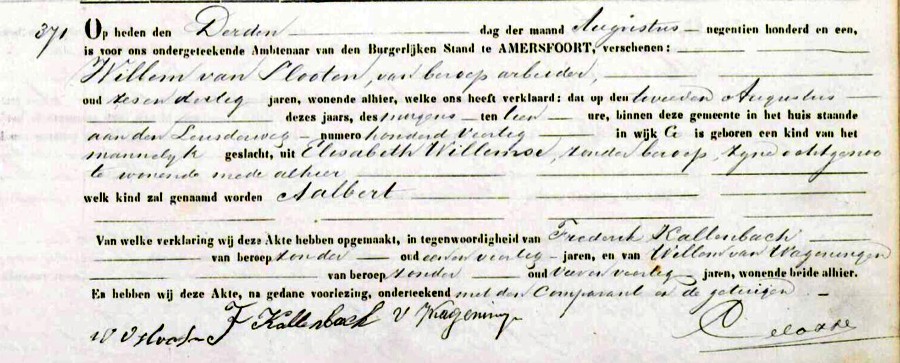 371 Op heden den Derden dag der maand Augustus negentien honderd en een,
is voor ons ondergeteekende Ambtenaar van den Burgerlijken Stand te AMERSFOORT, verschenen:
Willem van Slooten, van beroep arbeider,
oud zes en dertig jaren, wonende alhier, welke ons heeft verklaard: dat op den tweeden Augustus
dezes jaars, des morgens ten tien ure, binnen deze gemeente in het huis staande
aan den Leusderweg numero honderd veertig in wijk C is geboren een kind van het
mannelyk geslacht, uit Elisabeth Willemse, zonder beroep, zyne echtgenoo
te wonende mede alhier
welk kind zal genaamd worden Aalbert
Van welke verklaring wij deze Akte hebben opgemaakt, in tegenwoordigheid van Frederik Kallenbach
van beroep zonder oud een en veertig jaren, en van Willem van Wageningen
van beroep zonder oud veertig jaren, wonende beide alhier.
En hebben wij deze Akte, na gedane voorlezing, onderteekend met den Comparant en de getuigen.
W v Slooten F Kallenbach V Wageninge